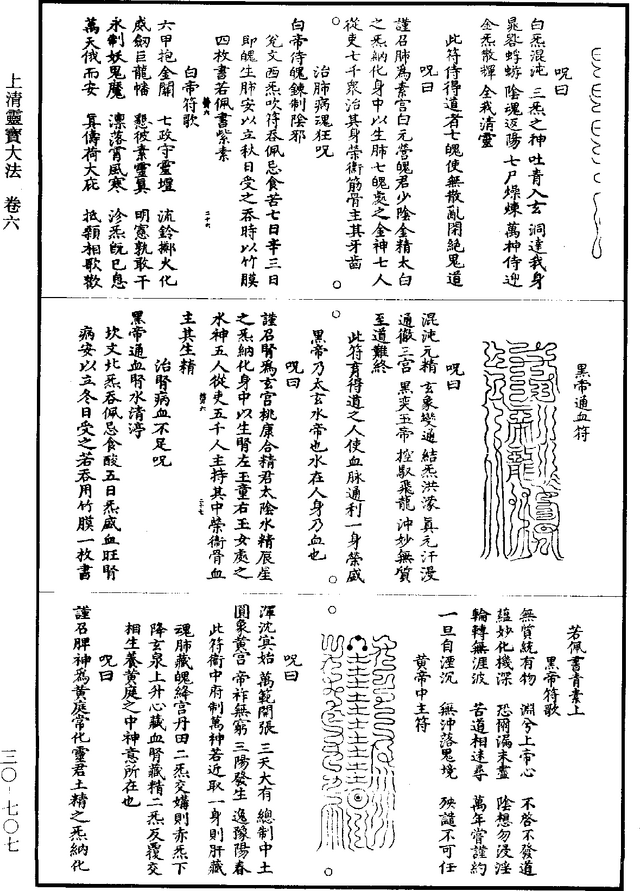 上清靈寶大法　卷六
三〇－七〇七
呪曰
白炁混沌　三炁之神　吐青入玄　洞達我身
晁晷蜉蝣　陰魂返陽　七尸燥煉　萬神侍迎
金炁散輝　全我清靈
此符侍得道者七魄使無散亂閉絕鬼道
呪曰
謹召肺為素宮白元營魄君少陰金精太白
之炁納化身中以生肺七魄處之金神七人
從吏七千眾治其身榮衛筋骨主其牙齒
治肺病魂狂呪
白帝侍魄鍊制陰邪
兌文西炁吹符吞佩忌食苦七日辛三日
即魄生肺安以立秋日受之吞時以竹膜
四枚書若佩書紫素
白帝符歌
六甲抱金關　七政守靈壇　流鈴擲火化
威劒巨龍幡　懇彼素靈真　明憲孰敢干
永制妖鬼魔　凜落霄風寒　沴炁既已息
萬天俄而安　真儔荷大庇　抵顙相歌歡
黑帝通血符
呪曰
混沌元精　玄象變通　結炁洪濛　真元汗漫
通徹三宮　黑奕玉帝　控馭飛龍　沖妙無質
至道難終
此符育得道之人使血脉通利一身榮盛
黑帝乃太玄水帝也水在人身乃血也
呪曰
謹召腎為玄宮桃康合精君太陰水精辰星
之炁納化身中以生腎左玉童右玉女處之
水神五人從吏五千人主持其中榮衛骨血
主其生精
治腎病血不足呪
黑帝通血腎水清渟
坎文北炁吞佩忌食酸五日炁盛血旺腎
病安以立冬日受之若吞用竹膜一枚書
若佩書青素上
黑帝符歌
無質統有物　淵兮上帝心　不啓不發道
蘊妙化機深　恐爾漏未盡　陰想勿浸淫
輪轉無涯波　苦道相連尋　萬年當謹約
一旦自湮沉　無沖落鬼境　殃譴不可任
黃帝中主符
呪曰
渾沈寞始　萬範開張　三天大有　總制中土
圓象黃宮　帝祚無窮　三陽發生　逸豫陽春
此符衛中府制萬神若近取一身則肝藏
魂肺藏魄絳宮丹田二炁交媾則赤炁下
降玄泉上升心藏血腎藏精二炁反覆交
相生養黃庭之中神意所在也
呪曰
謹召脾神為黃庭常化靈君土精之炁納化